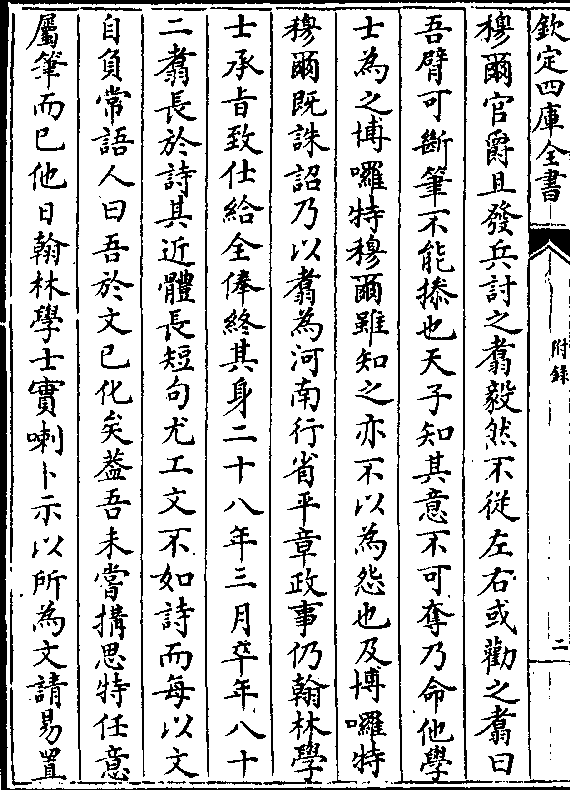 欽定四庫全書
附錄
二
穆爾官爵且發兵討之翥毅然不從左右或勸之翥曰
吾臂可斷筆不能搽也天子知其意不可奪乃命他學
士為之博囉特穆爾雖知之亦不以為怨也及博囉特
穆爾既誅詔乃以翥為河南行省平章政事仍翰林學
士承㫖致仕給全俸終其身二十八年三月卒年八十
二翥長於詩其近體長短句尤工文不如詩而每以文
自負常語人曰吾於文已化矣葢吾未嘗搆思特任意
屬筆而已他日翰林學士實喇卜示以所為文請易置